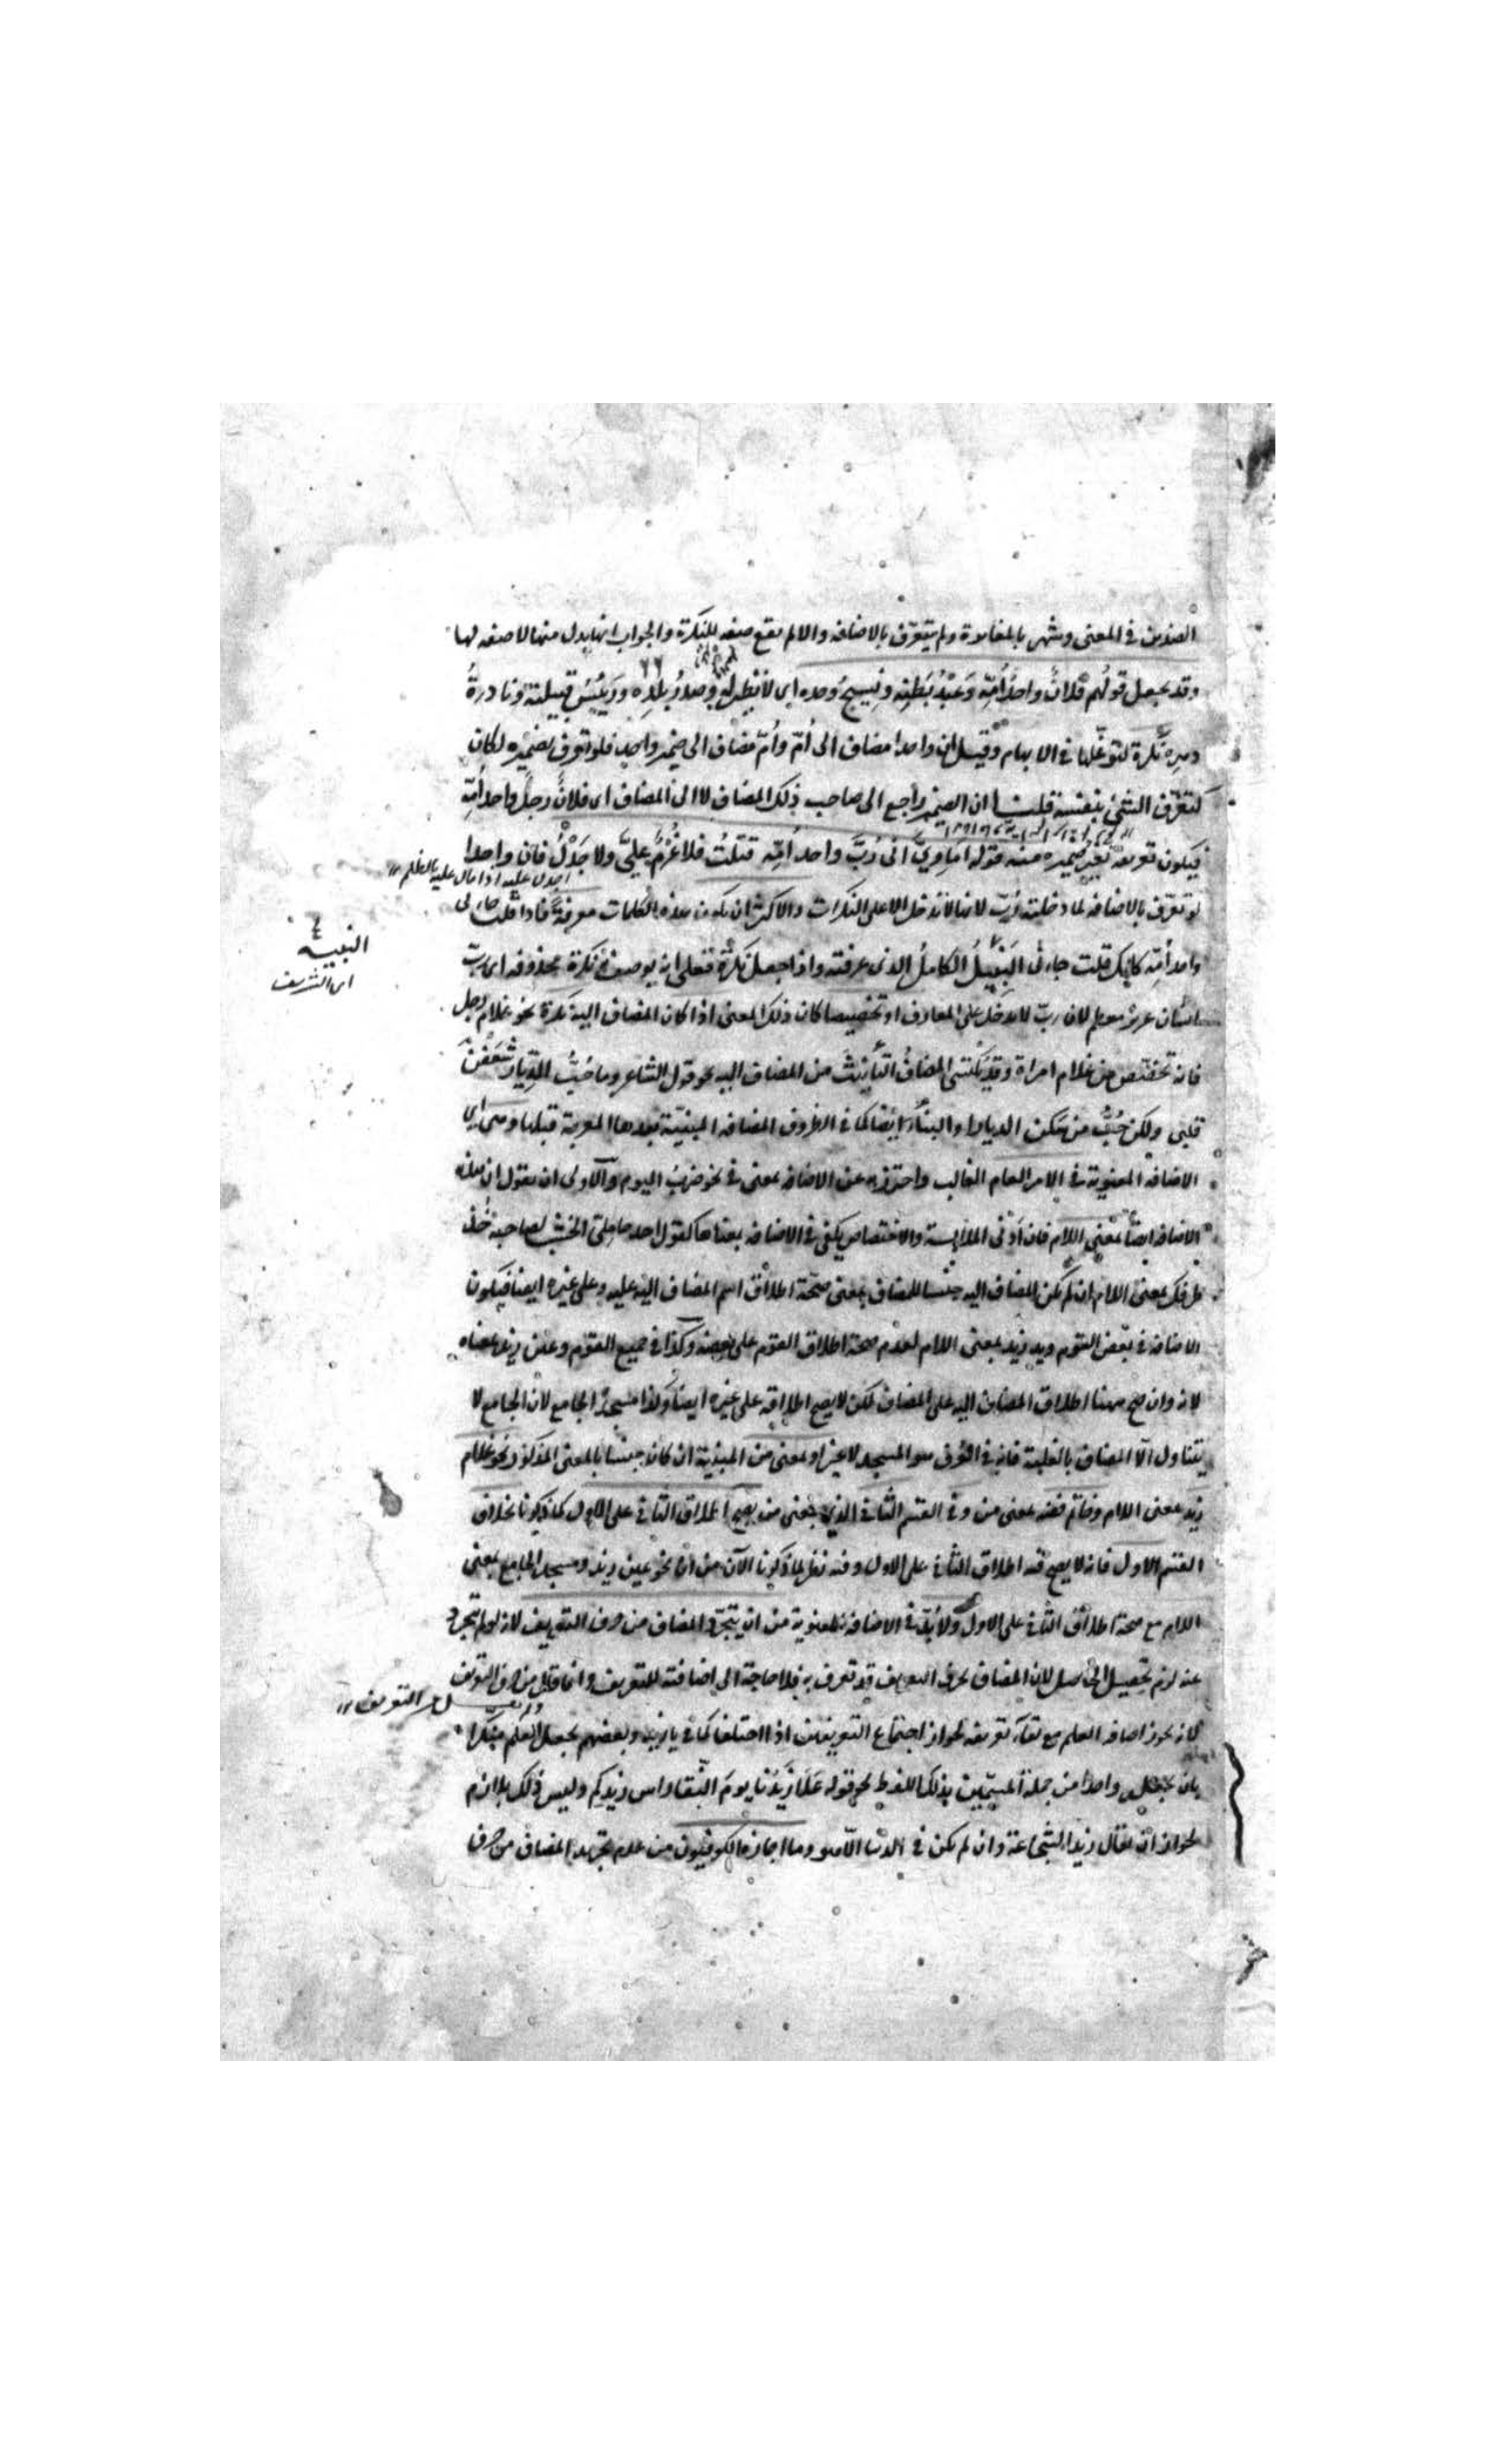 الضدين في المعنى وشهر بالمغايرة ولم يتعرّف بالاضافه والا لم يقع صفه للنكرة والجواب انها بدل منها لا صفه لها
وقد يجعل قولُهم فلانٌ واحدُ اُمّه وَعَبْدُ بَطنِه ونَسِيجُ وحده اى لا نظير له وصدرُ بلدِه ورَئيسُ قبيلته ونادرةُ
دهرِه نكرة لتوغّلها في الابهام وقيل ان واحدا مضاف الى اُمّ واُمّ مضاف الى ضمير واحد فلو تعرف بضميره لكان
كتعرّف الشئ بنفسه قلت ان الضمير راجع الى صاحب ذلك المضاف لا الى المضاف اى فلانٌ رجل واحد اُمّه
فيكون تعريفه بغير ضميره منه قوله اَماوِيَّ انّى رُبَّ واحد اُمّه قتلتُ فلا غُرْمٌ علىَّ ولا جَدْلٌ فان واحدا
اجدل عليه اذا مال عليه بالظلم
لو تعرّف بالاضافه لما دخلته رُبّ لانها لا تدخل الا على النكرات والاكثر ان يكون هذه الكلمات معرفة فاذا قلت جاءنى
واحد اُمّه كانك قلت جاءنى النبيلُ الكاملُ الذى عرفته واذا جعل نكرة فعلى انه يوصف به نكرة محذوفه اى ربّ
النبيه
اى الشريف
انسان عزيز معظم لان ربّ لا يدخل على المعارف او تخصيصا كان ذلك المعنى اذا كان المضاف اليه نكرة نحو غلام رجل
فانه تخصّص من غلام امراة وقد يكتسى المضافُ التأنيثَ من المضاف اليه نحو قول الشاعر وما حُبُّ الدِّيار شَغَفْنَ
قلبى ولكن حُبُّ من سَكن الديارا والبناءَ ايضا كما في الظروف المضافه المبنيّة بعدها المعربة قبلها وهى اى
الاضافه المعنوية في الامر العام الغالب واحترز به عن الاضافه بمعنى في نحو ضرب اليوم والاولى ان يقول ان هذه
الاضافه ايضا بمعنى اللام فان اَدْنى الملابسة والاختصاص يكفى في الاضافه بمعناها كقول احد حاملَى الخشب لصاحبه خُذ
طرفك بمعنى اللام ان لم يكن المضاف اليه جنسا للمضاف بمعنى صحّة اطلاق اسم المضاف اليه عليه وعلى غيره ايضا فيكون
الاضافه في بعض القوم ويد زيد بمعنى اللام لعدم صحة اطلاق القوم على بعضه وكذا في جميع القوم وعين زيد بمعناه
لانه وان صح ههنا اطلاق المضاف اليه على المضاف لكن لا يصح اطلاقه على غيره ايضا وكذا مسجدُ الجامع لان الجامع لا
يتناول الّا المضاف بالغلبة فانه في العُرف هو المسجد لا غير او بمعنى من المبيّنة ان كان جنسا بالمعنى المذكور نحو غلام
زيد بمعنى اللام وخاتم فضه بمعنى من وفي القسم الثاني الذى بمعنى من يصح اطلاق الثاني على الاول كما ذكرنا بخلاف
القسم الاول فانه لا يصح فيه اطلاق الثاني على الاول وفيه نظر لما ذكرنا الآن من ان نحو عين زيد ومسجد الجامع بمعنى
اللام مع صحة اطلاق الثاني على الاول ولا بُدّ في الاضافه المعنوية من ان يتجرّد المضاف من حرف التعريف لانه لو لم تجرد
عنه لزم تحصيل الحاصل لان المضاف بحرف التعريف قد تعرف به فلا حاجة الى اضافته للتعريف وانما قال من حرف التعريف
ولم يقل من التعريف
لانه يجوز اضافه العلم مع بقاء تعريفه لجواز اجتماع التعريفين اذا اختلفا كما في يا زيد وبعضهم يجعل العلم منكرا
بان يجعل واحدا من جملة المسمّين بذلك اللفظ نحو قوله عَلَا زَيْدُنا يومَ النَّقا راس زيدكم وليس ذلك بلازم
لجواز ان يقال زيد الشجاعة وان لم يكن في الدنيا الّا هو وما اجازه الكوفيون من عدم تجريد المضاف من حرف